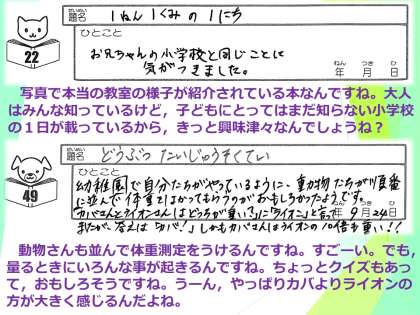 だいめい
題名 1ねん1くみの1にち
ひとこと
お兄ちゃんの小学校と同じことに
気がつきました。
22
ねん つき ひ
年 月 日
写真で本当の教室の様子が紹介されている本なんですね。大人
はみんな知っているけど，子どもにとってはまだ知らない小学校
の１日が載っているから，きっと興味津々なんでしょうね？
だいめい
題名 どうぶつたいじゅうそくてい
ひとこと
幼稚園で自分たちがやっているように、動物たちが順番
に並んで体重をはかってもらうのがおもしろかったようです。
49
「カバさんとライオンさんはどっちが重い？」に「ライオン」と言って
年 9月 24日
ましたが、答えは「カバ！」しかもカバさんはライオンの10倍も重い！！
動物さんも並んで体重測定をうけるんですね。すごーい。でも,
量るときにいろんな事が起きるんですね。ちょっとクイズもあっ
て，おもしろそうですね。うーん，やっぱりカバよりライオンの
方が大きく感じるんだよね。